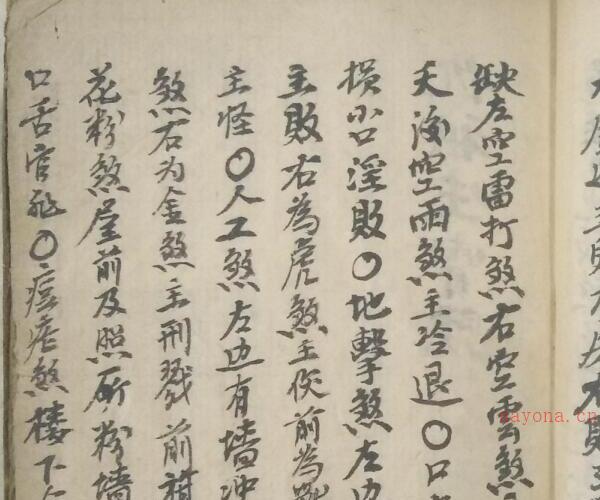 缺左空雷打煞右空雲煞
天後空雨煞主冷退〇口
損小口淫敗〇地擊煞左边
主敗右為虎煞主伤前為
主怪〇人工煞左边有墻冲
煞右为金煞主刑戮前
花粉煞屋前及照所粉墙
口舌官非〇瘟疟煞楼下
zayona.cn